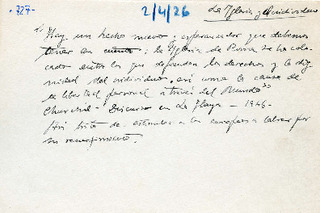 ·727·
2/4/26
La Iglesia y el individuo
"Hay un hecho nuevo: esperanzador que debemos
tener en cuenta: la Iglesia de Roma se ha colo-
cado entre los que defienden los derechos y la dig-
nidad del individuo, así como la causa de
la libertad personal a través del Mundo"
Churchill - Discurso en La Haya - 1948-
de estímulo a los europeos a laborar por
su resurgimiento.